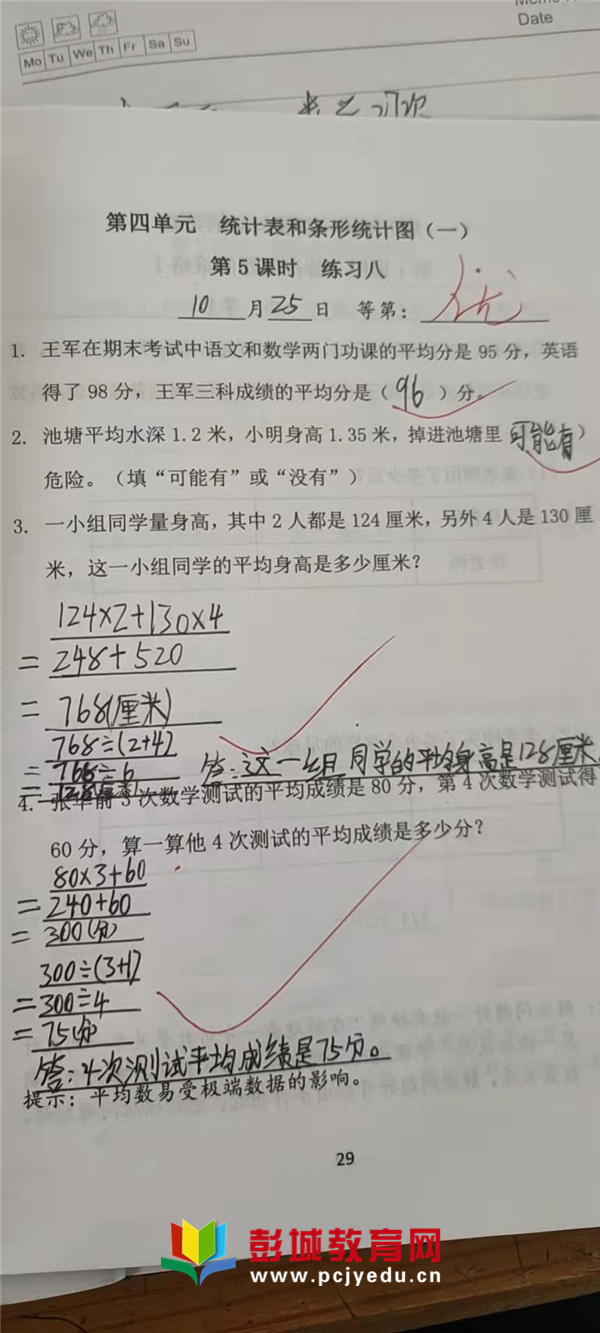 Date
Mo Tu We Th Fr Sa Su
第四单元 统计表和条形统计图（一）
第5课时 练习八
10月25日 等第：优
1. 王军在期末考试中语文和数学两门功课的平均分是95分，英语
得了98分，王军三科成绩的平均分是（96）分。
2. 池塘平均水深1.2米，小明身高1.35米，掉进池塘里 可能有）
危险。（填“可能有”或“没有”）
3. 一小组同学量身高，其中2人都是124厘米，另外4人是130厘
米，这一小组同学的平均身高是多少厘米？
124×2+130×4
=248+520
=768(厘米)
768÷(2+4)
=768÷6
=128(厘米)
答：这一组同学的平均身高是128厘米。
4. 张华前3次数学测试的平均成绩是80分，第4次数学测试得
60分，算一算他4次测试的平均成绩是多少分？
80×3+60
=240+60
=300(分)
300÷(3+1)
=300÷4
=75(分)
答：4次测试平均成绩是75分。
提示：平均数易受极端数据的影响。
29
彭城教育网
www.pcjyedu.cn